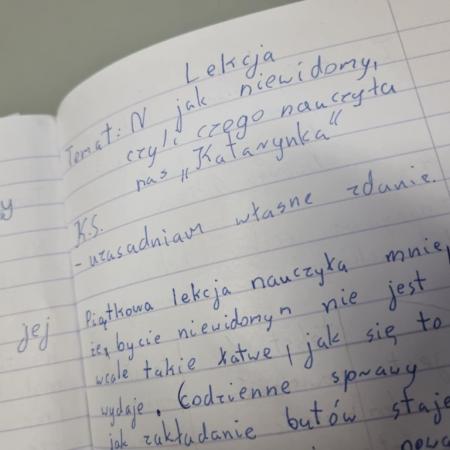 Lekcja
Temat: N jak niewidomy,
czyli czego nauczyła
nas „Katarynka"
K.S.
- uzasadniam własne zdanie.
Piątkowa lekcja nauczyła mnie,
że, bycie niewidomyn nie jest
wcale takie łatwe, jak się to
wydaje. Codzienne sprawy
jak zakładanie butów staje
y
jej